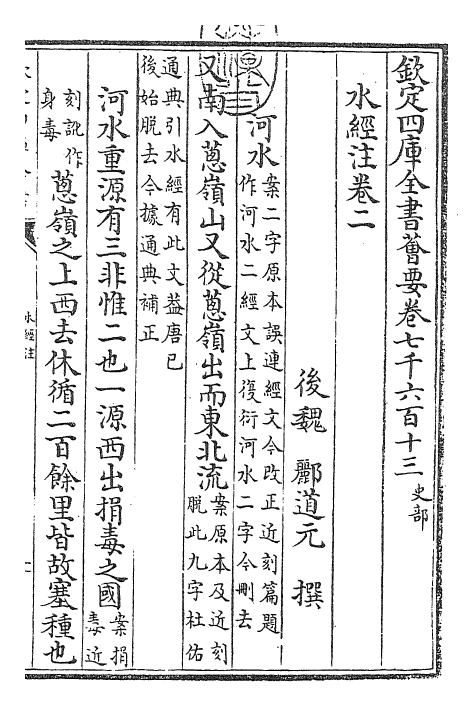 欽定四庫全書薈要卷七千六百十三 史部
水經注卷二
後魏 酈道元 撰
河水 案二字原本誤連經文今改正近刻篇題
作河水二經文上復衍河水二字今刪去
又南入蔥嶺山又從蔥嶺出而東北流 案原本及近刻
脫此九字杜佑
通典引水經有此文葢唐已
後始脫去今據通典補正
河水重源有三非惟二也一源西出捐毒之國 案捐
毒近
刻訛作
身毒
蔥嶺之上西去休循二百餘里皆故塞種也
水經注